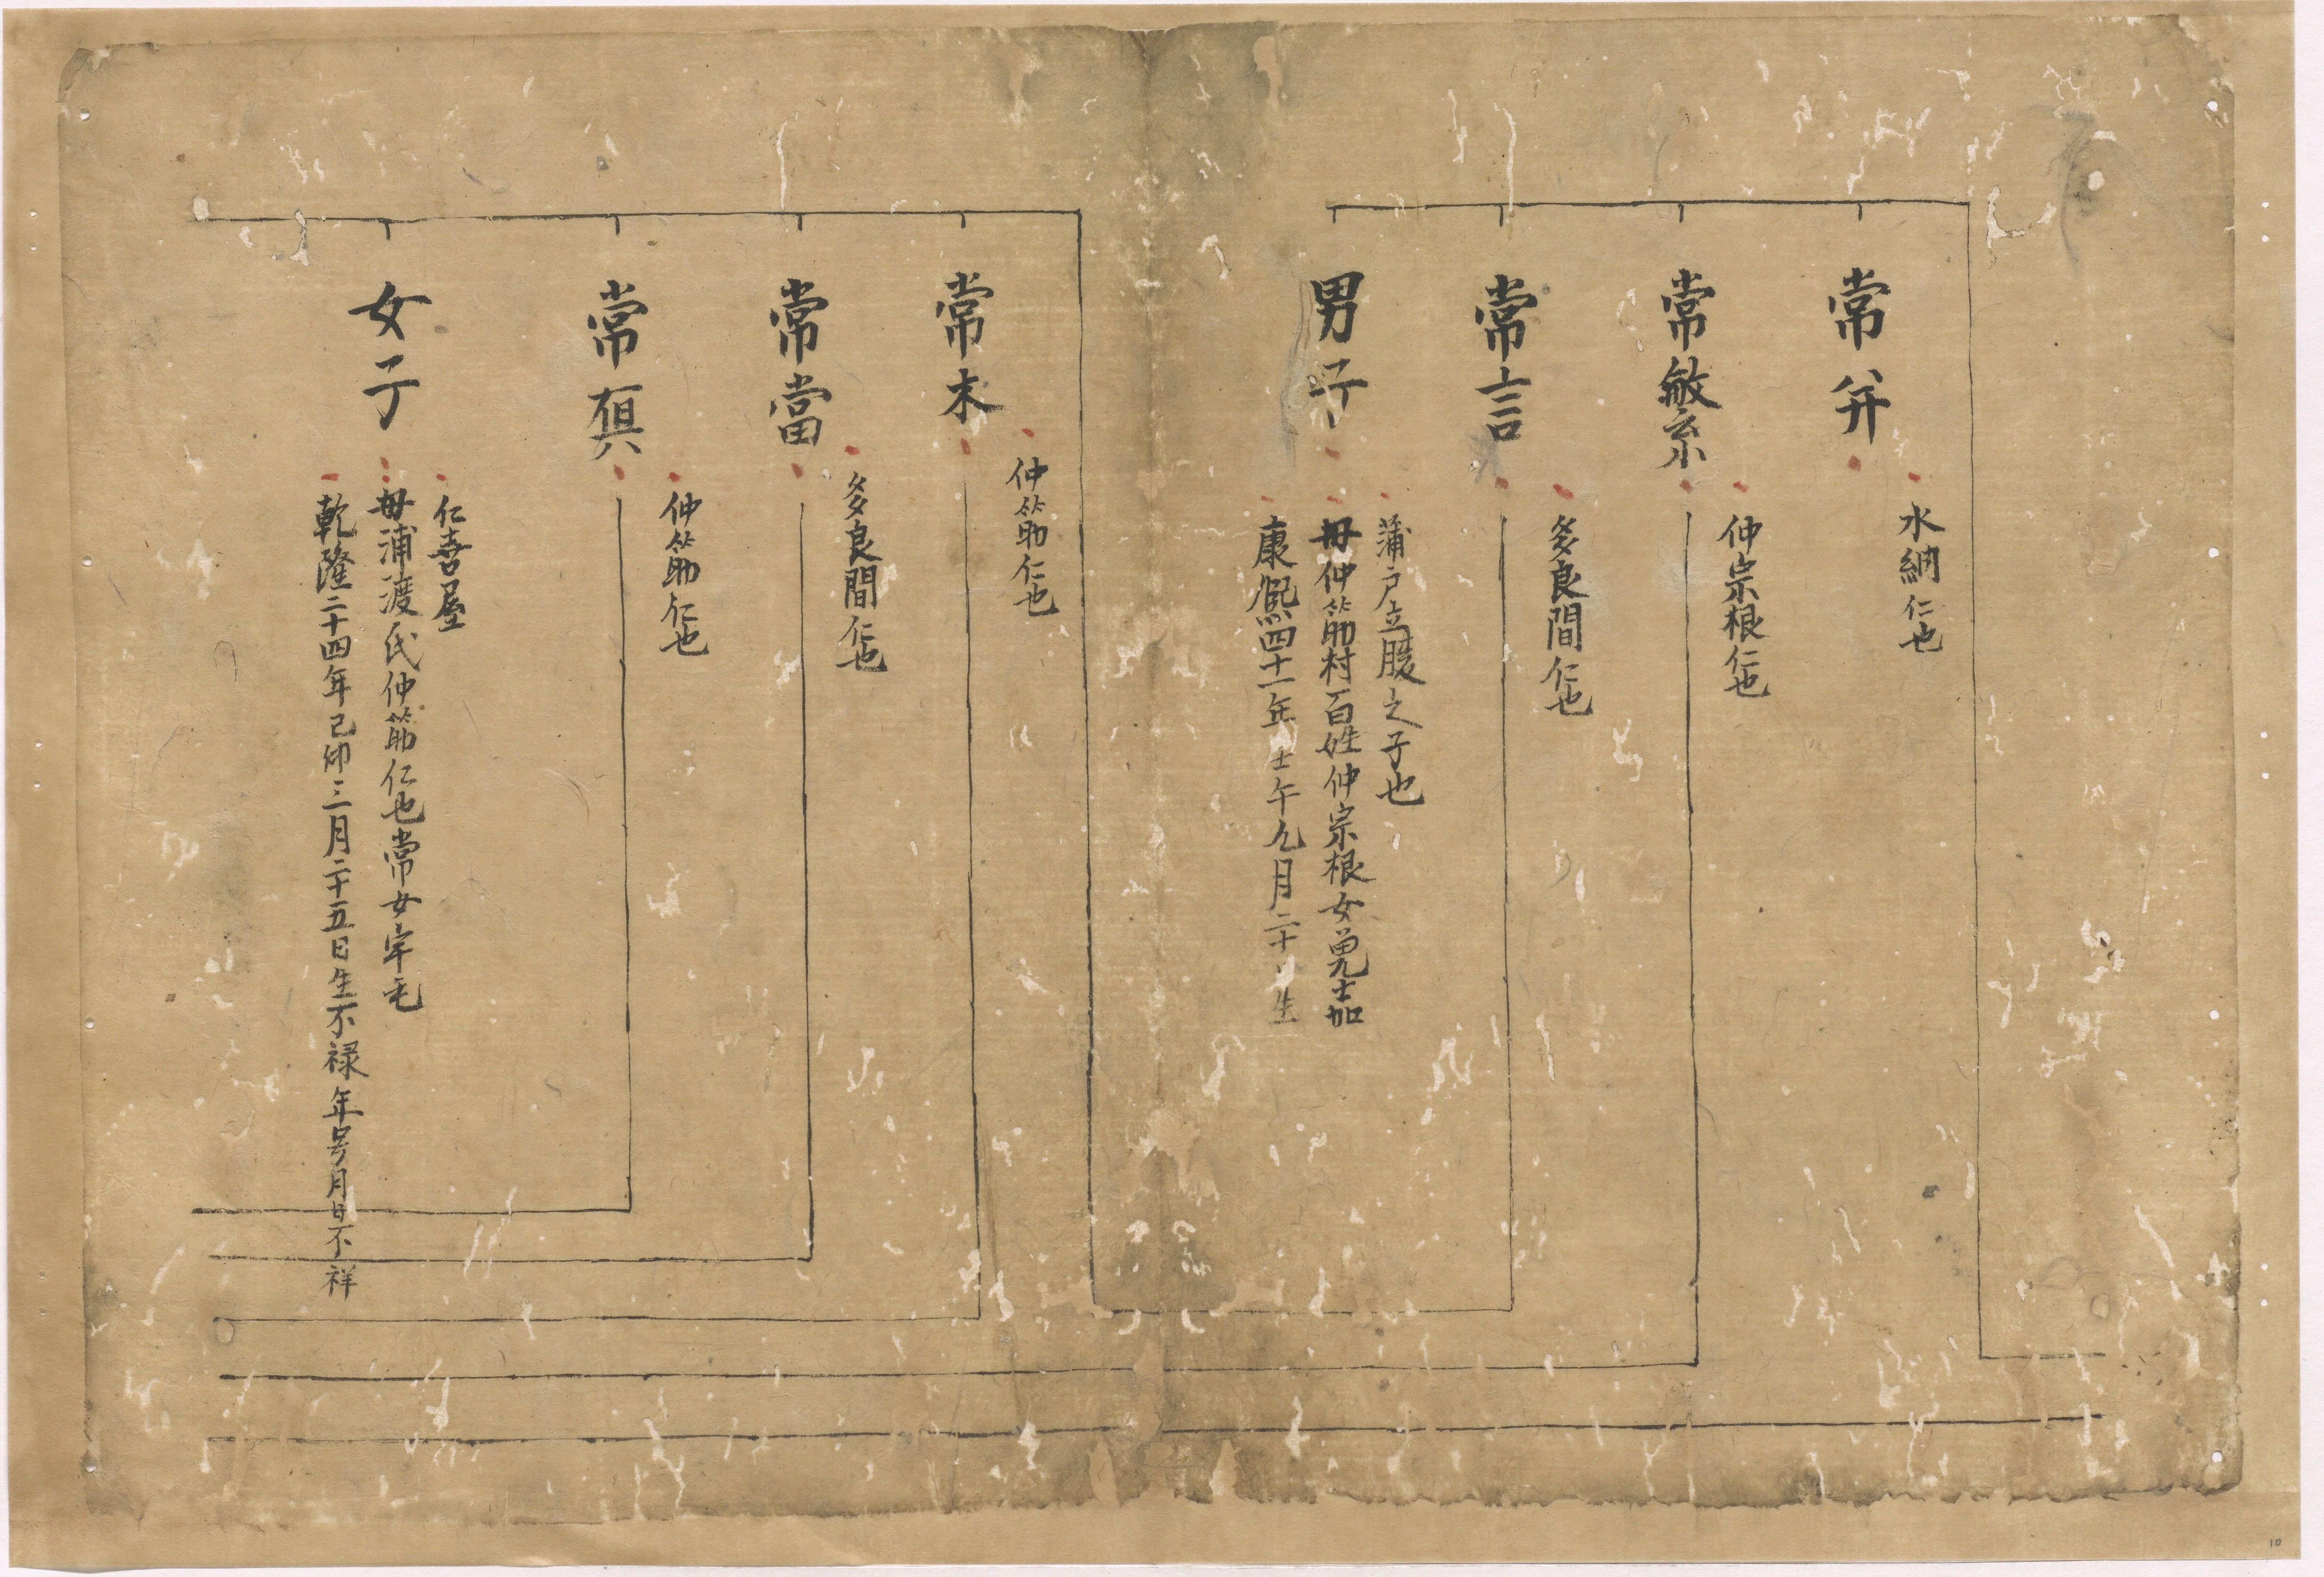 常并
水納仁也
常繁
仲宗根仁也
常言
多良間仁也
男子
蒲戸立腹之子也
母仲筋村百姓仲宗根女兎士加
康熙四十一年壬午九月二十 生
常末
仲筋仁也
常當
多良間仁也
常俱
仲筋仁也
女子
仁喜屋
母浦渡氏仲筋仁也常 女宇毛
乾隆二十四年己卯三月二十五日生不禄年号月日不祥
10